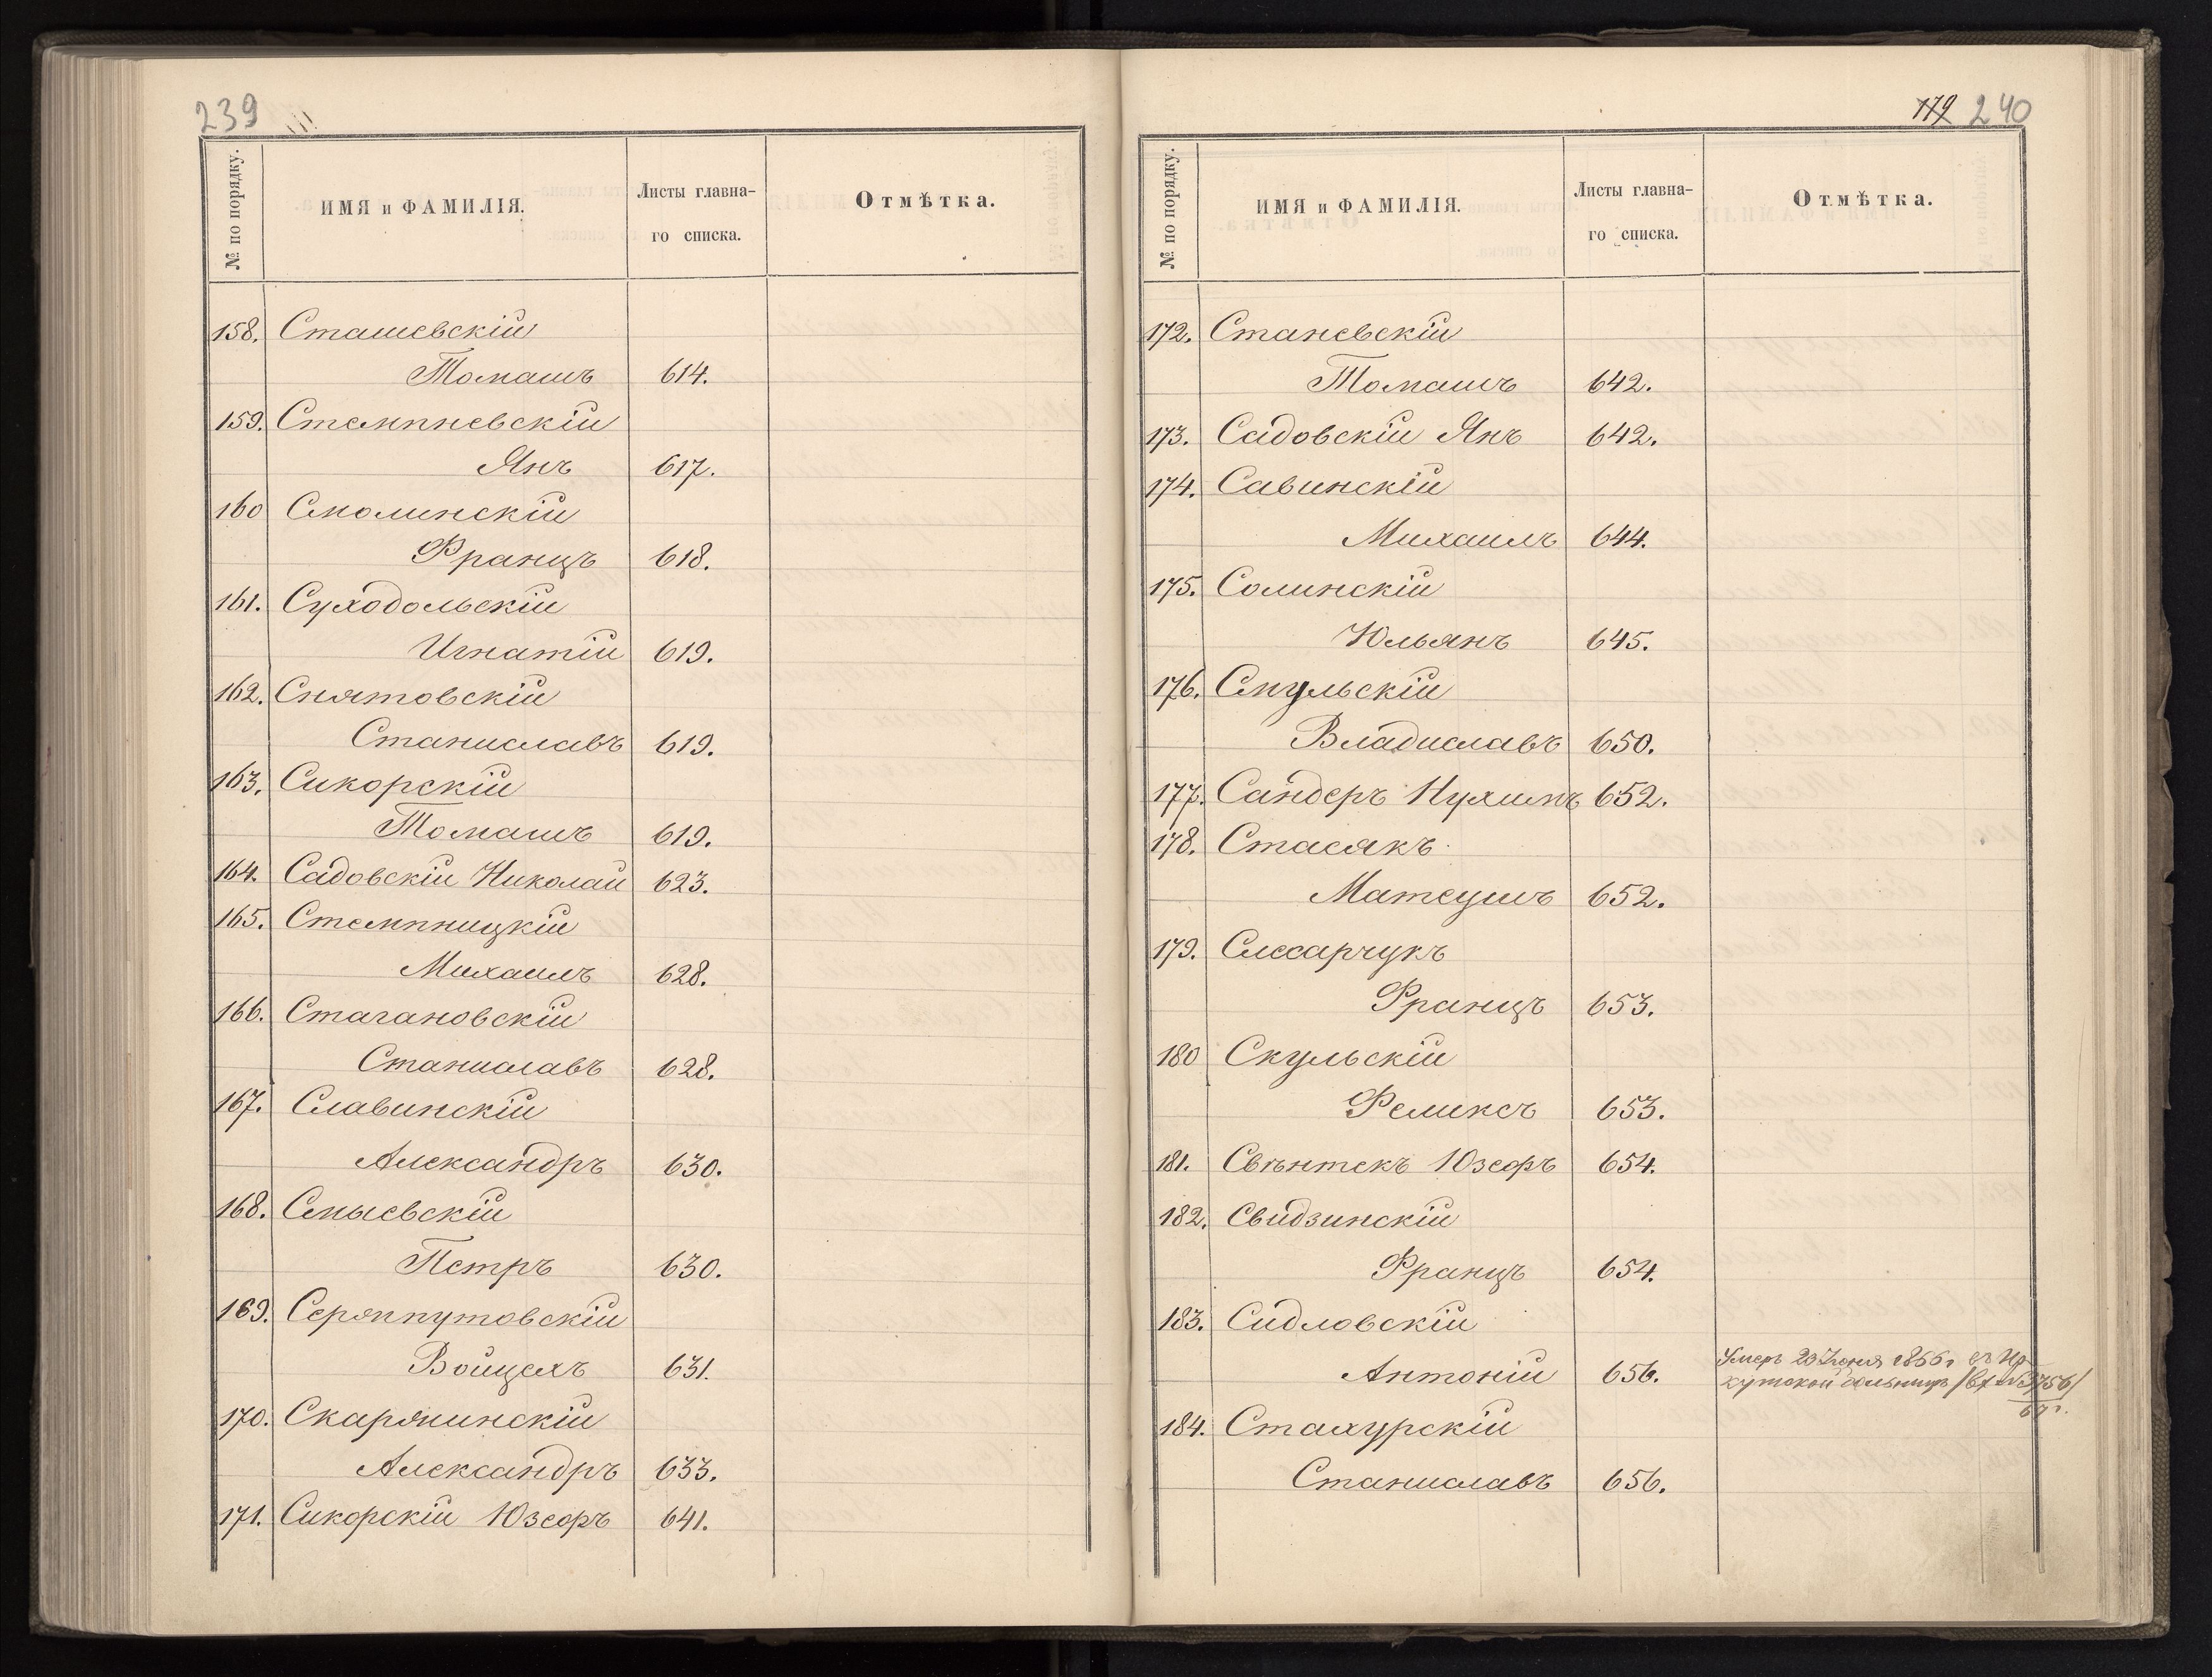 239
№ по порядку.
ИМЯ и ФАМИЛІЯ.
Листы главна-
го списка.
Отмѣтка.
158. Сташевскій
Томашъ 614.
159. Стемпневскій
Янъ 617.
160 Смолинскій
Францъ 618.
161. Суходольскій
Игнатій 619.
162. Снятовскій
Станиславъ 619.
163. Сикорскій
Томашъ 619.
164. Садовскій Николай 623.
165. Стемпницкій
Михаилъ 628.
166. Стагановскій
Станиславъ 628.
167. Славинскій
Александръ 630.
168. Смыевскій
Петръ 630.
169. Серяппутовскій
Войцехъ 631.
170. Скаржинскій
Александръ 633.
171. Сикорскій Юзефъ 641.
119 240
№ по порядку.
ИМЯ и ФАМИЛІЯ.
Листы главна-
го списка.
Отмѣтка.
172. Станевскій
Томашъ 642.
173. Садовскій Янъ 642.
174. Савинскій
Михаилъ 644.
175. Солинскій
Юльянъ 645.
176. Смульскій
Владиславъ 650.
177. Сандеръ Нухимъ 652.
178. Стасякъ
Матеушъ 652.
179. Слесарчукъ
Францъ 653.
180 Скульскій
Феликсъ 653.
181. Свѣнтекъ Юзефъ 654.
182. Свидзинскій
Францъ 654.
183. Сидловскій
Антоній 656. Умеръ 20 Іюня 1866 г въ Ир
кутской больницѣ /вх №3756/
67 г.
184. Стахурскій
Станиславъ 656.